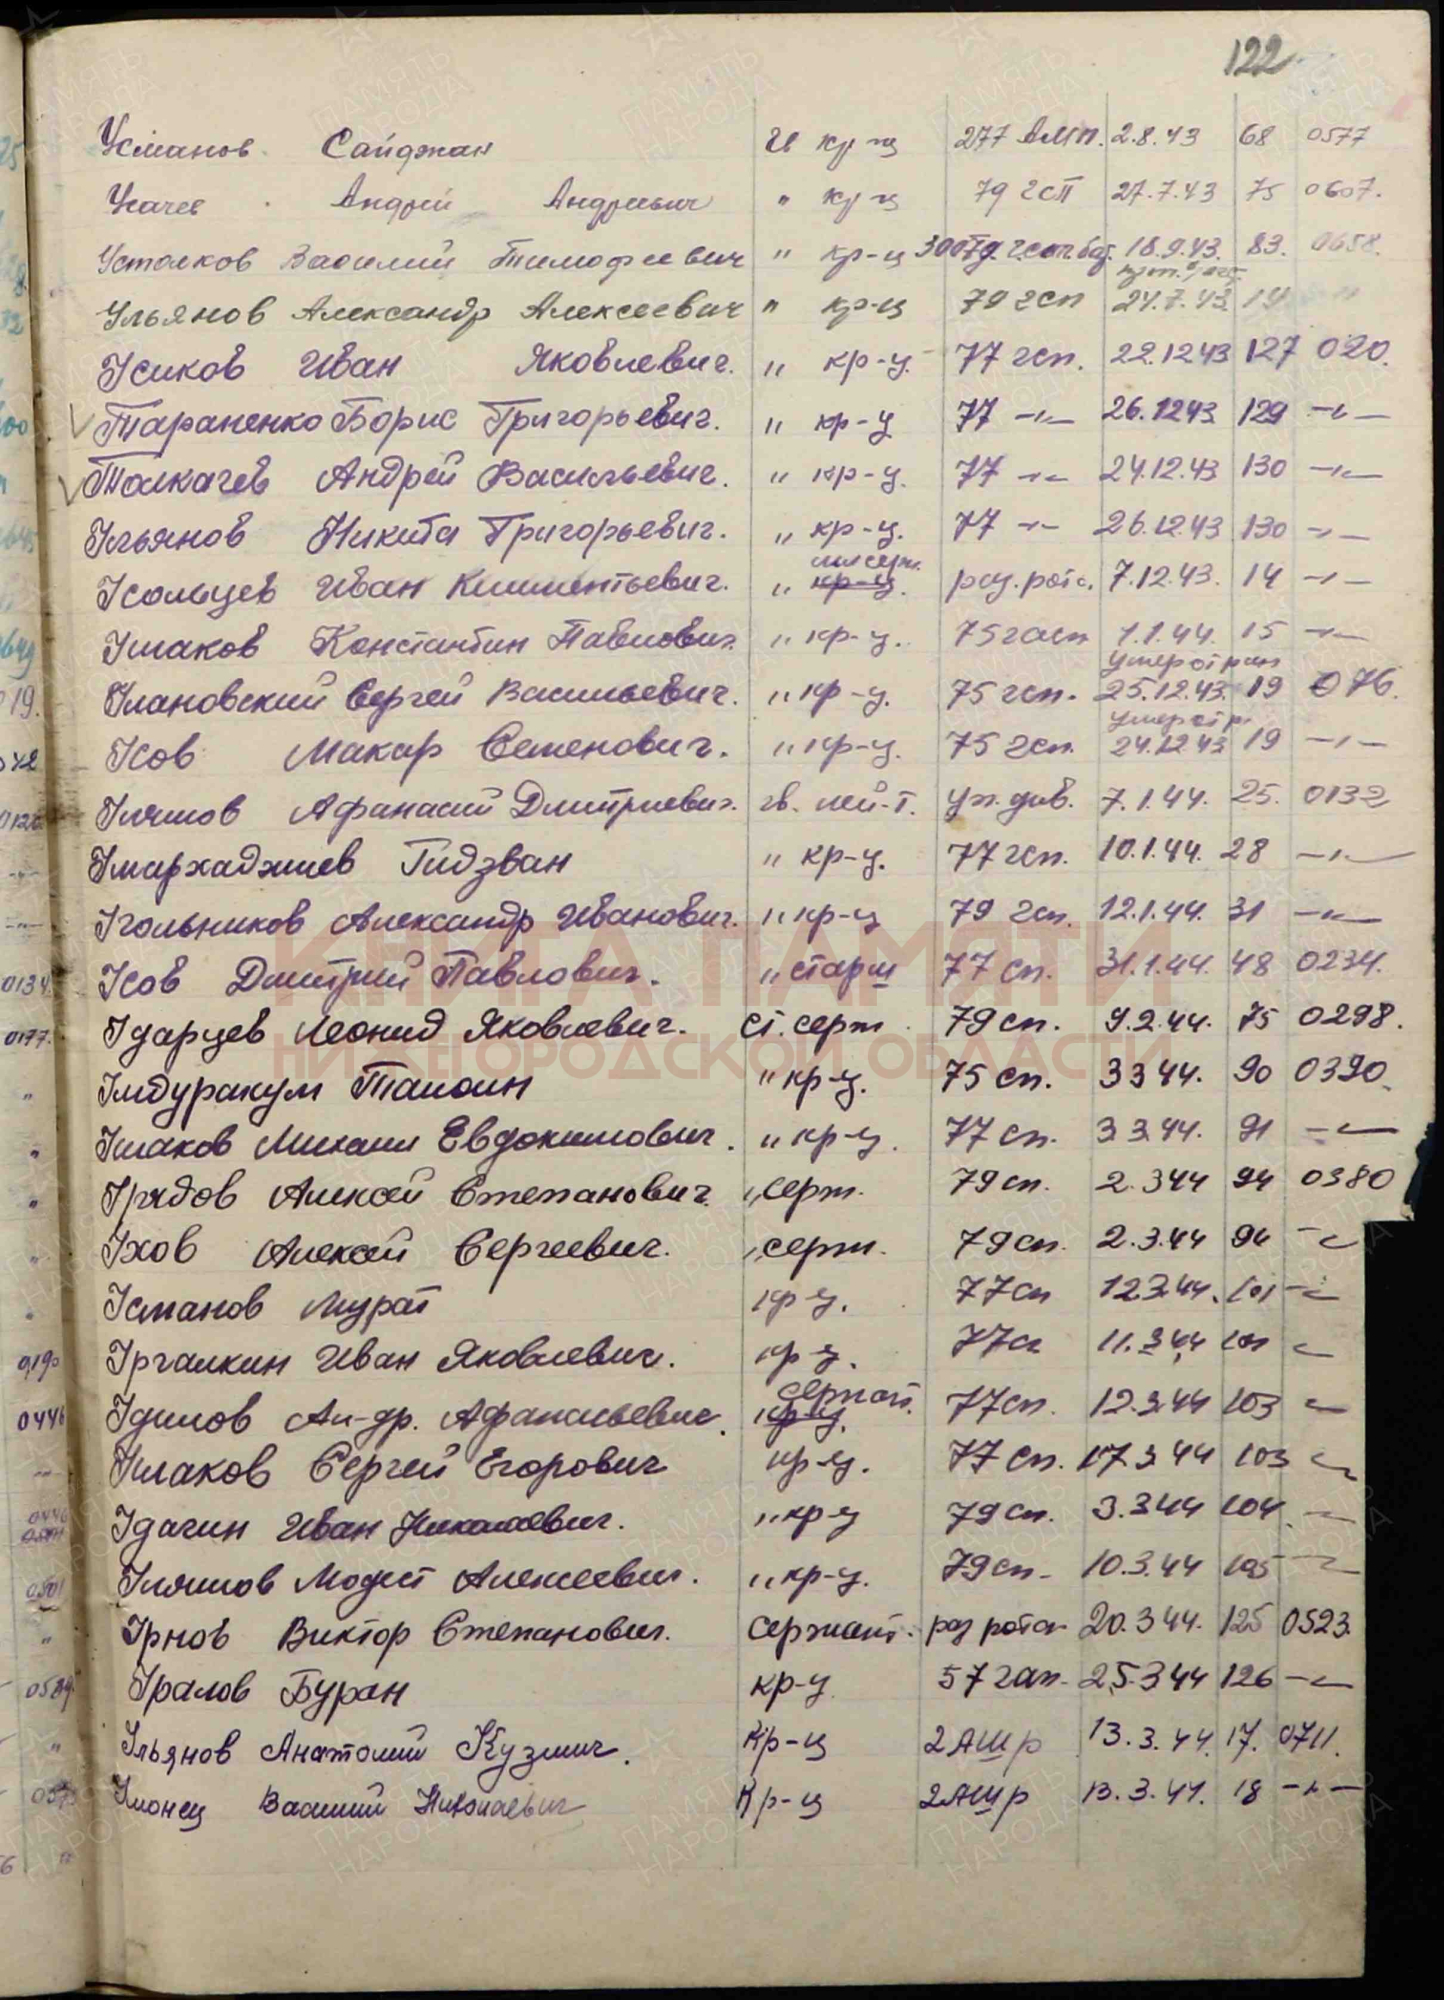 122
Усманов Сайджан И кр-ц 277 АМП. 2.8.43 68 0577
Усачев Андрей Андреевич " кр-ц 79 гсп 27.7.43 75 0607.
Устюков Василий Тимофеевич " кр-ц 18.9.43. 83. 0658.
Ульянов Александр Алексеевич " кр-ц 79 гсп 24.7.43 19
Усиков Иван Яковлевич. " кр-ц. 77 гсп. 22.12.43 127 020.
Тараненко Борис Григорьевич. " кр-ц 77 -"- 26.12.43 129 -"-
Толкачев Андрей Васильевич. " кр-ц. 77 -"- 24.12.43 130 -"-
Ульянов Никита Григорьевич. " кр-ц. 77 -"- 26.12.43 130 -"-
мл серж.
Усольцев Иван Климентьевич. " кр-ц. раз. рота. 7.12.43. 14 -"-
Ушаков Константин Павлович. " кр-ц. 75 гасп 1.1.44. 15 -"-
умер от ран
Улановский Сергей Васильевич. " кр-ц. 75 гсп. 25.12.43. 19 076.
умер от р
Усов Макар Семенович. " кр-ц. 75 гсп. 24.12.43 19 -"-
Уляшов Афанасий Дмитриевич. гв. лей-т. уп. див. 7.1.44. 25. 0132
Умархаджиев Гидзван " кр-ц. 77 гсп. 10.1.44. 28 -"-
Угольников Александр Иванович. " кр-ц 79 гсп. 12.1.44. 31 -"-
Усов Дмитрий Павлович. " старш 77 сп. 31.1.44. 48 0234.
Ударцев Леонид Яковлевич. ст. серж. 79 сп. 9.2.44. 75 0298.
Улдуракум Таиоин " кр-ц. 75 сп. 3 3 44. 90 0390.
Ушаков Михаил Евдокимович. " кр-ц. 77 сп. 3.3.44. 91 -"-
Урядов Алексей Степанович. " серж. 79 сп. 2.3 44 94 0380
Ухов Алексей Сергеевич. " серж. 79 сп. 2.3.44 94 -"-
Усманов Мурат кр-ц. 77 сп 12 3.44. 101 -"-
Ургалкин Иван Яковлевич. кр-ц. 77 сп 11.3 44 101 -"-
сержант.
Удилов Ал-др. Афанасьевич. кр-ц. 77 сп. 12.3.44 103 -"-
Ушаков Сергей Егорович кр-ц. 77 сп. 17.3.44 103 -"-
Удачин Иван Николаевич. " кр-ц 79 сп. 3.3 44 104 -"-
Уляшов Модест Алексеевич. " кр-ц. 79 сп. 10.3.44 105 -"-
Урнов Виктор Степанович. сержант. раз рота 20.3 44. 125 0523.
Уралов Буран кр-ц 57 гап. 25.3 44 126 -"-
Ульянов Анатолий Кузмич. Кр-ц 2 АШр 13.3.44. 17. 0711.
Улонец Василий Николаевич Кр-ц 2 АШр 13.3.41. 18 -"-
КНИГА ПАМЯТИ
НИЖЕГОРОДСКОЙ ОБЛАСТИ